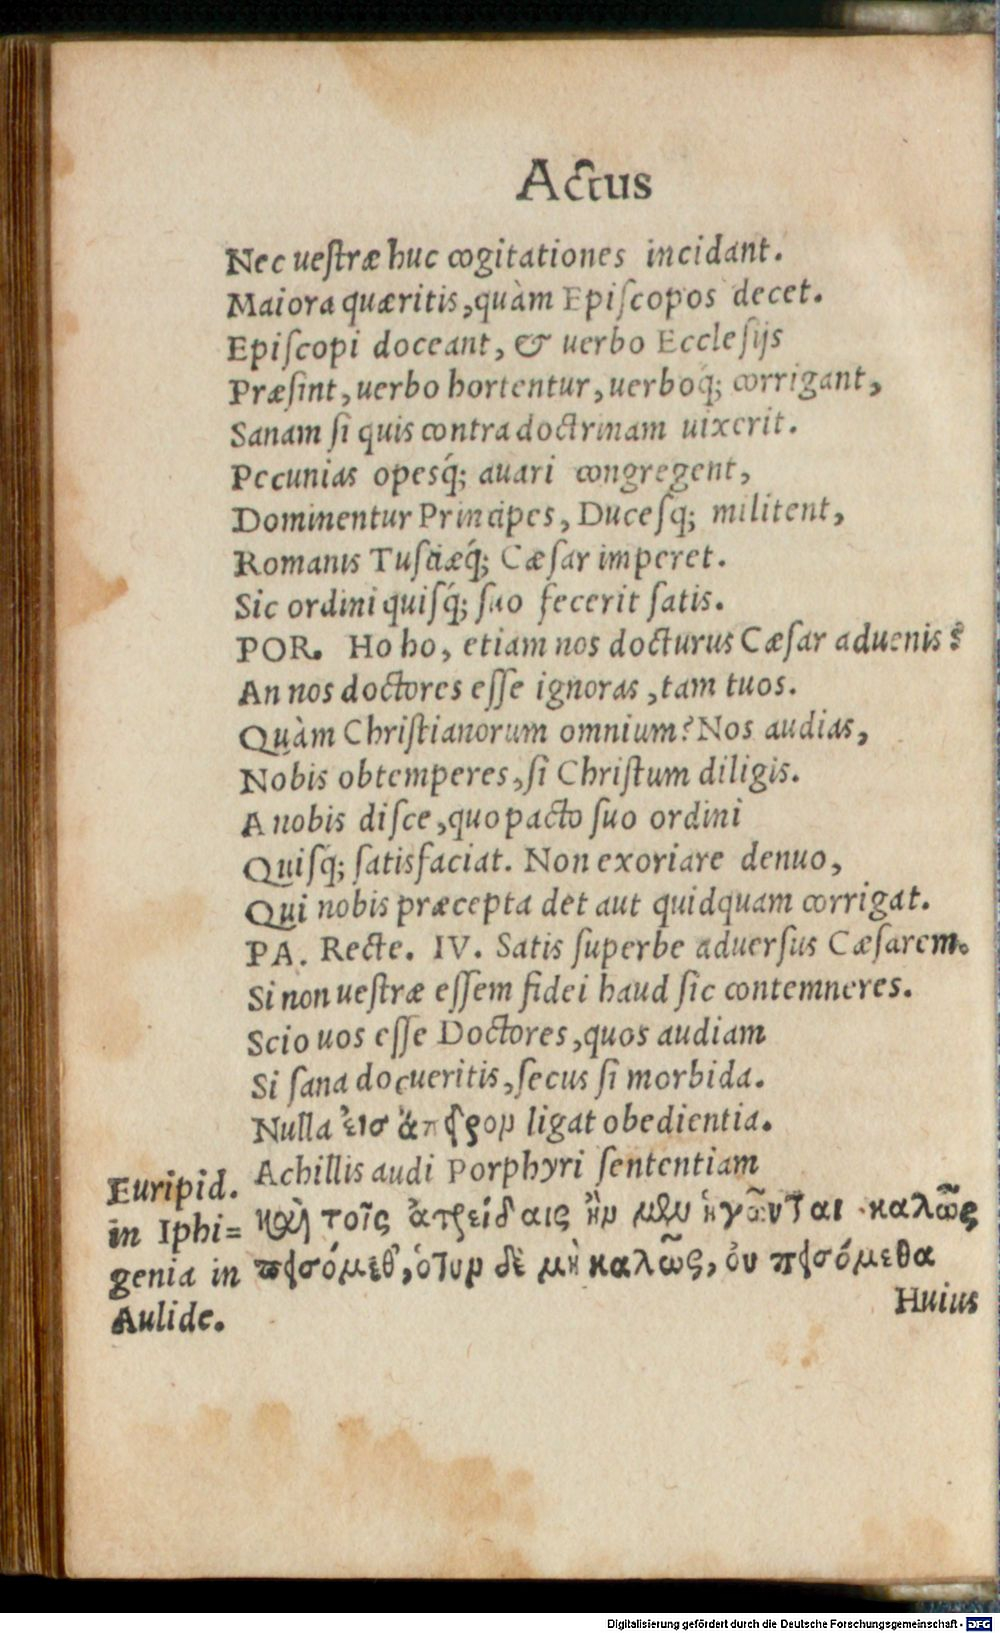 Actus
Nec uestræ huc cogitationes incidant.
Maiora quæritis, quàm Episcopos decet.
Episcopi doceant, & uerbo Ecclesijs
Præsint, uerbo hortentur, uerboq́; corrigant,
Sanam si quis contra doctrinam uixerit.
Pecunias opesq́; auari congregent,
Dominentur Principes, Ducesq́; militent,
Romanis Tusciæq́; Cæsar imperet.
Sic ordini quisq́; suo fecerit satis.
POR. Ho ho, etiam nos docturus Cæsar aduenis?
An nos doctores esse ignoras, tam tuos.
Quàm Christianorum omnium? Nos audias,
Nobis obtemperes, si Christum diligis.
A nobis disce, quo pacto suo ordini
Quisq́; satisfaciat. Non exoriare denuo,
Qui nobis præcepta det aut quidquam corrigat.
PA. Recte. IV. Satis superbe aduersus Cæsarem.
Si non uestræ essem fidei haud sic contemneres.
Scio uos esse Doctores, quos audiam
Si sana docueritis, secus si morbida.
Nulla ἐισ ἄπειρον ligat obedientia.
Achillis audi Porphyri sententiam
καὶ τοῖς ἀτρείδαις ἢν μὲν ἡγῶνται καλῶς
πεισόμεθ', ὅταν δὲ μὴ καλῶς, ὀυ πεισόμεθα
Euripid.
in Iphi=
genia in
Aulide.
Huius
Digitalisierung gefördert durch die Deutsche Forschungsgemeinschaft - DFG